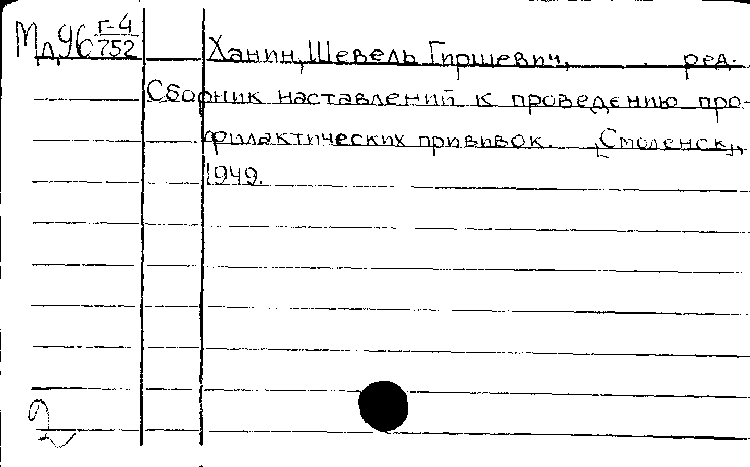 Мл96 Г-4/752
Ханин, Шевель Гиршевич, ред.
Сборник наставлений к проведению про-
филактических прививок. [Смоленск],
1949.
2